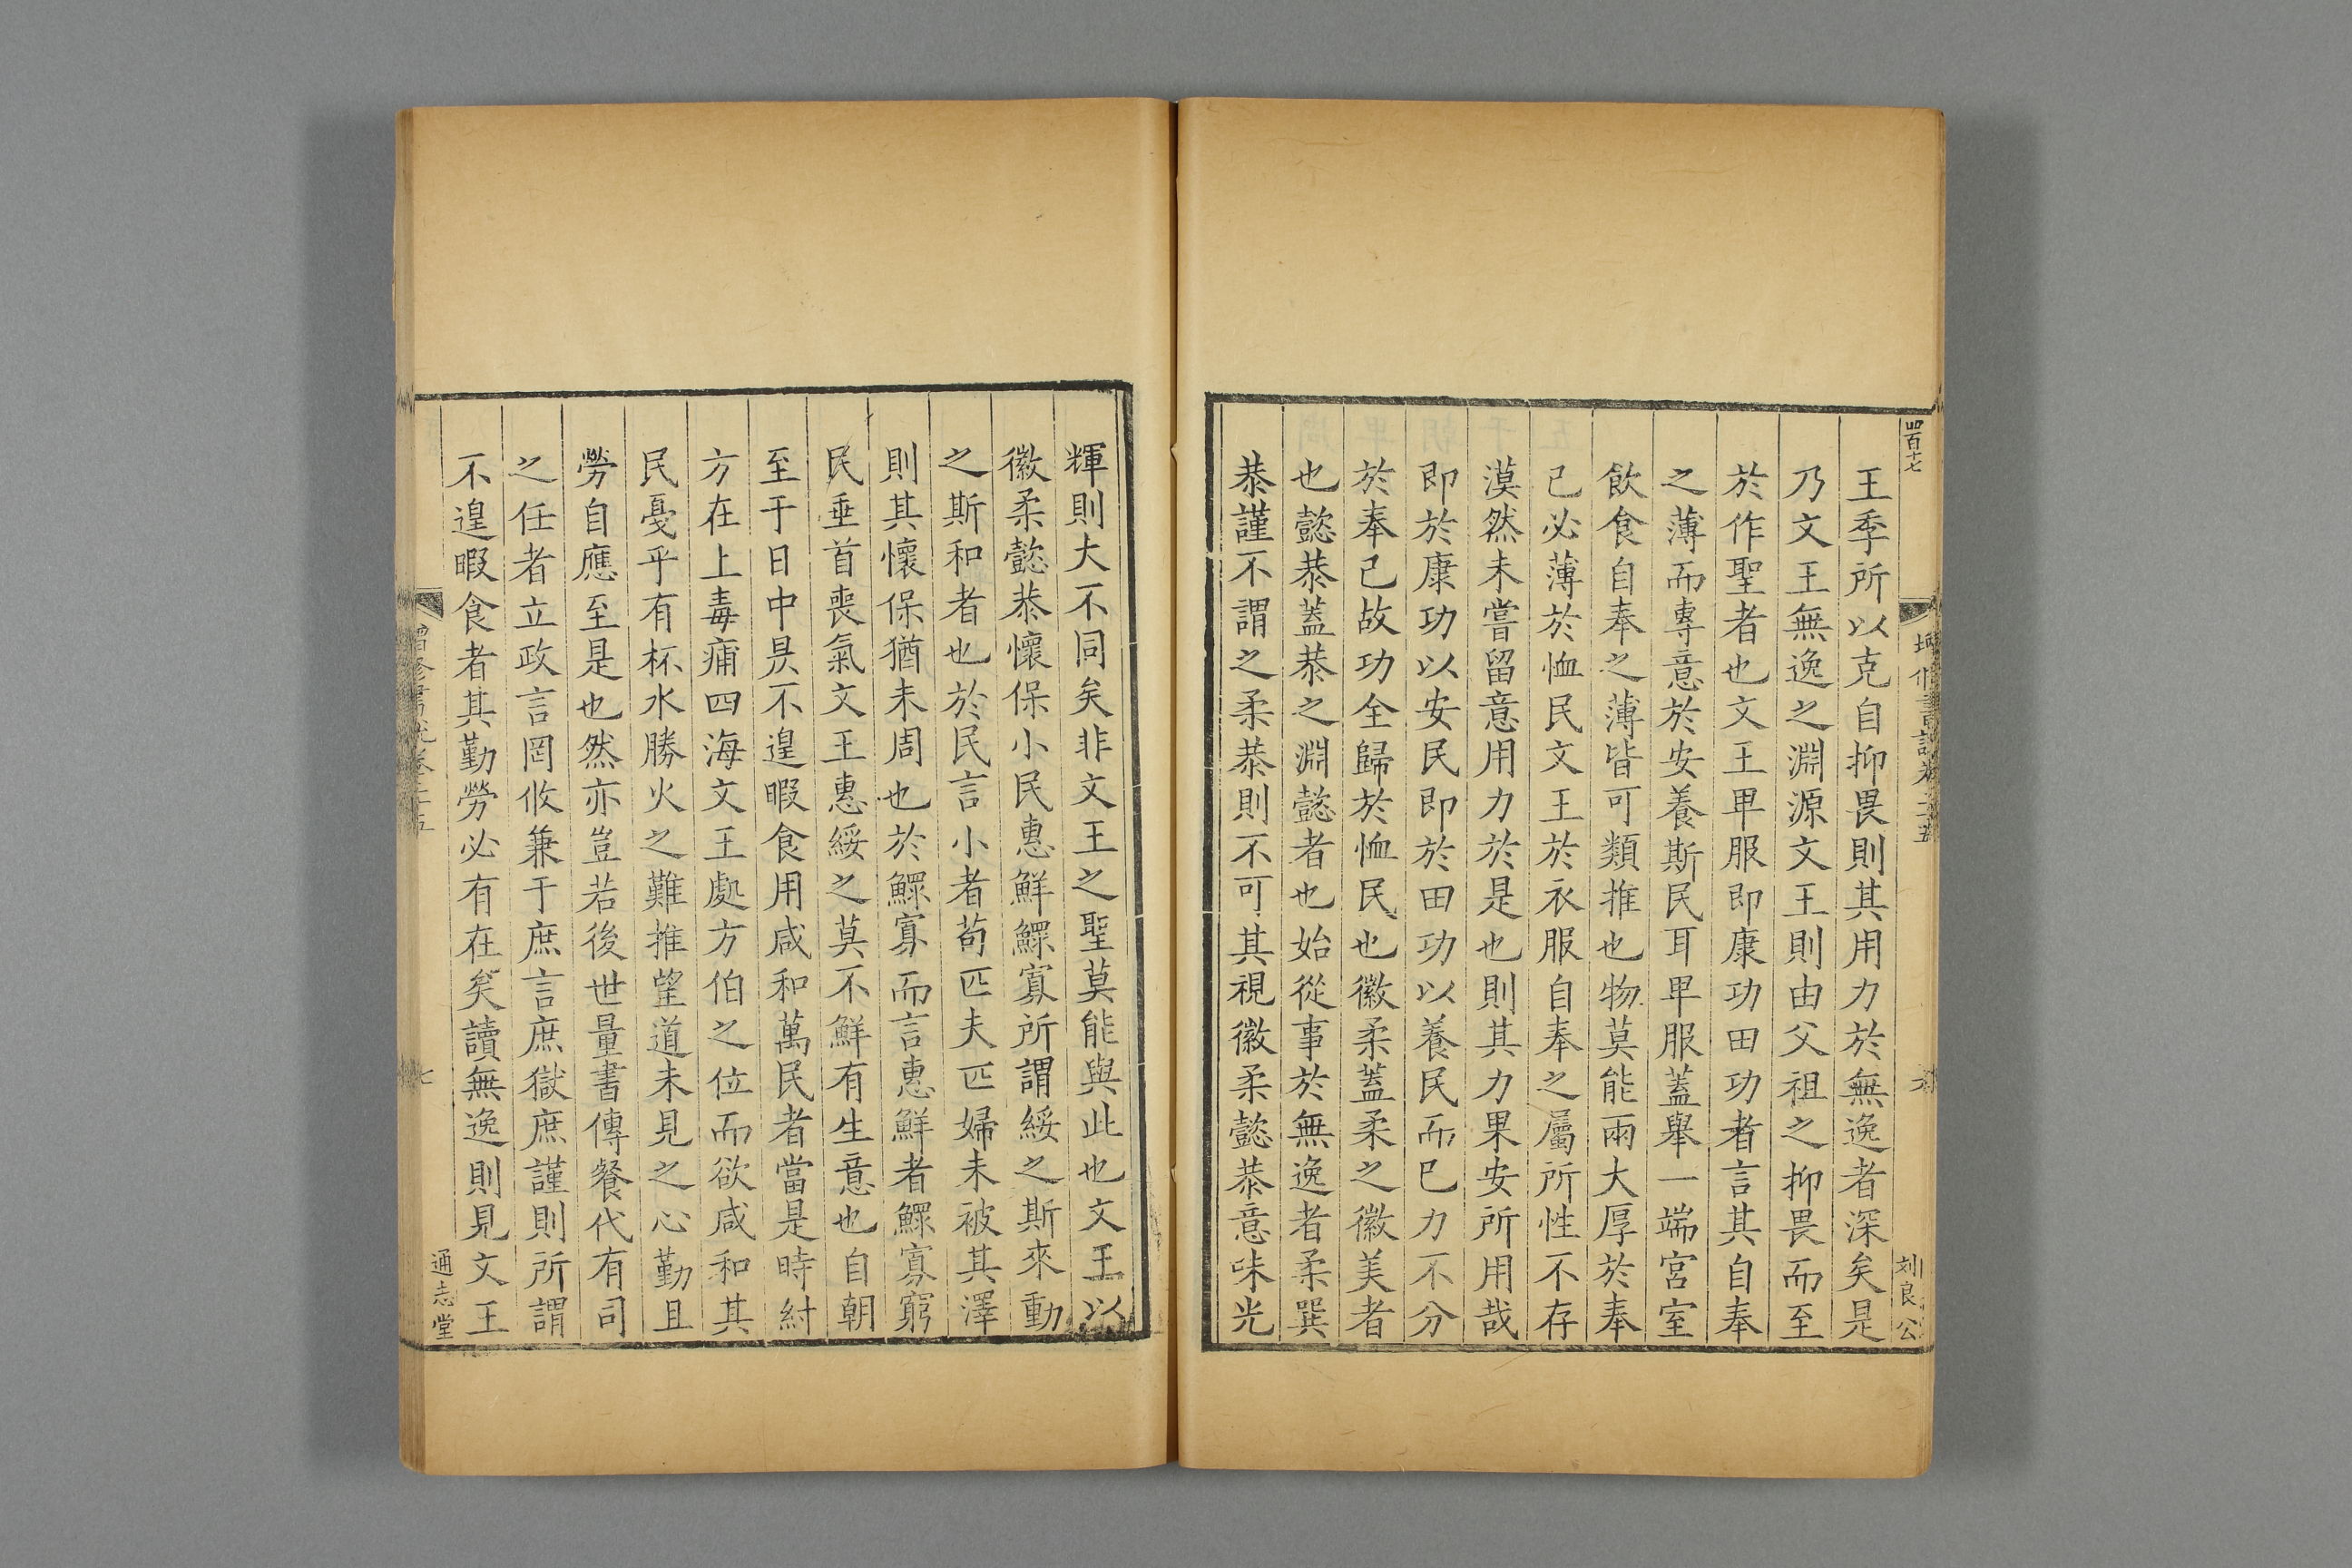 四百十七
增修書說卷二十五
六
刘良公
王季所以克自抑畏則其用力於無逸者深矣是
乃文王無逸之淵源文王則由父祖之抑畏而至
於作聖者也文王卑服即康功田功者言其自奉
之薄而專意於安養斯民耳卑服蓋舉一端宮室
飲食自奉之薄皆可類推也物莫能兩大厚於奉
己必薄於恤民文王於衣服自奉之屬所性不存
漠然未嘗留意用力於是也則其力果安所用哉
即於康功以安民即於田功以養民而已力不分
於奉己故功全歸於恤民也徽柔蓋柔之徽美者
也懿恭蓋恭之淵懿者也始從事於無逸者柔巽
恭謹不謂之柔恭則不可其視徽柔懿恭意味光
輝則大不同矣非文王之聖莫能與此也文王以
徽柔懿恭懷保小民惠鮮鰥寡所謂綏之斯來動
之斯和者也於民言小者苟匹夫匹婦未被其澤
則其懷保猶未周也於鰥寡而言惠鮮者鰥寡窮
民垂首喪氣文王惠綏之莫不鮮有生意也自朝
至于日中昃不遑暇食用咸和萬民者當是時紂
方在上毒痡四海文王處方伯之位而欲咸和其
民憂乎有杯水勝火之難推望道未見之心勤且
勞自應至是也然亦豈若後世量書傳餐代有司
之任者立政言罔攸兼于庶言庶獄庶謹則所謂
不遑暇食者其勤勞必有在矣讀無逸則見文王
增修書說卷二十五
七
通志堂